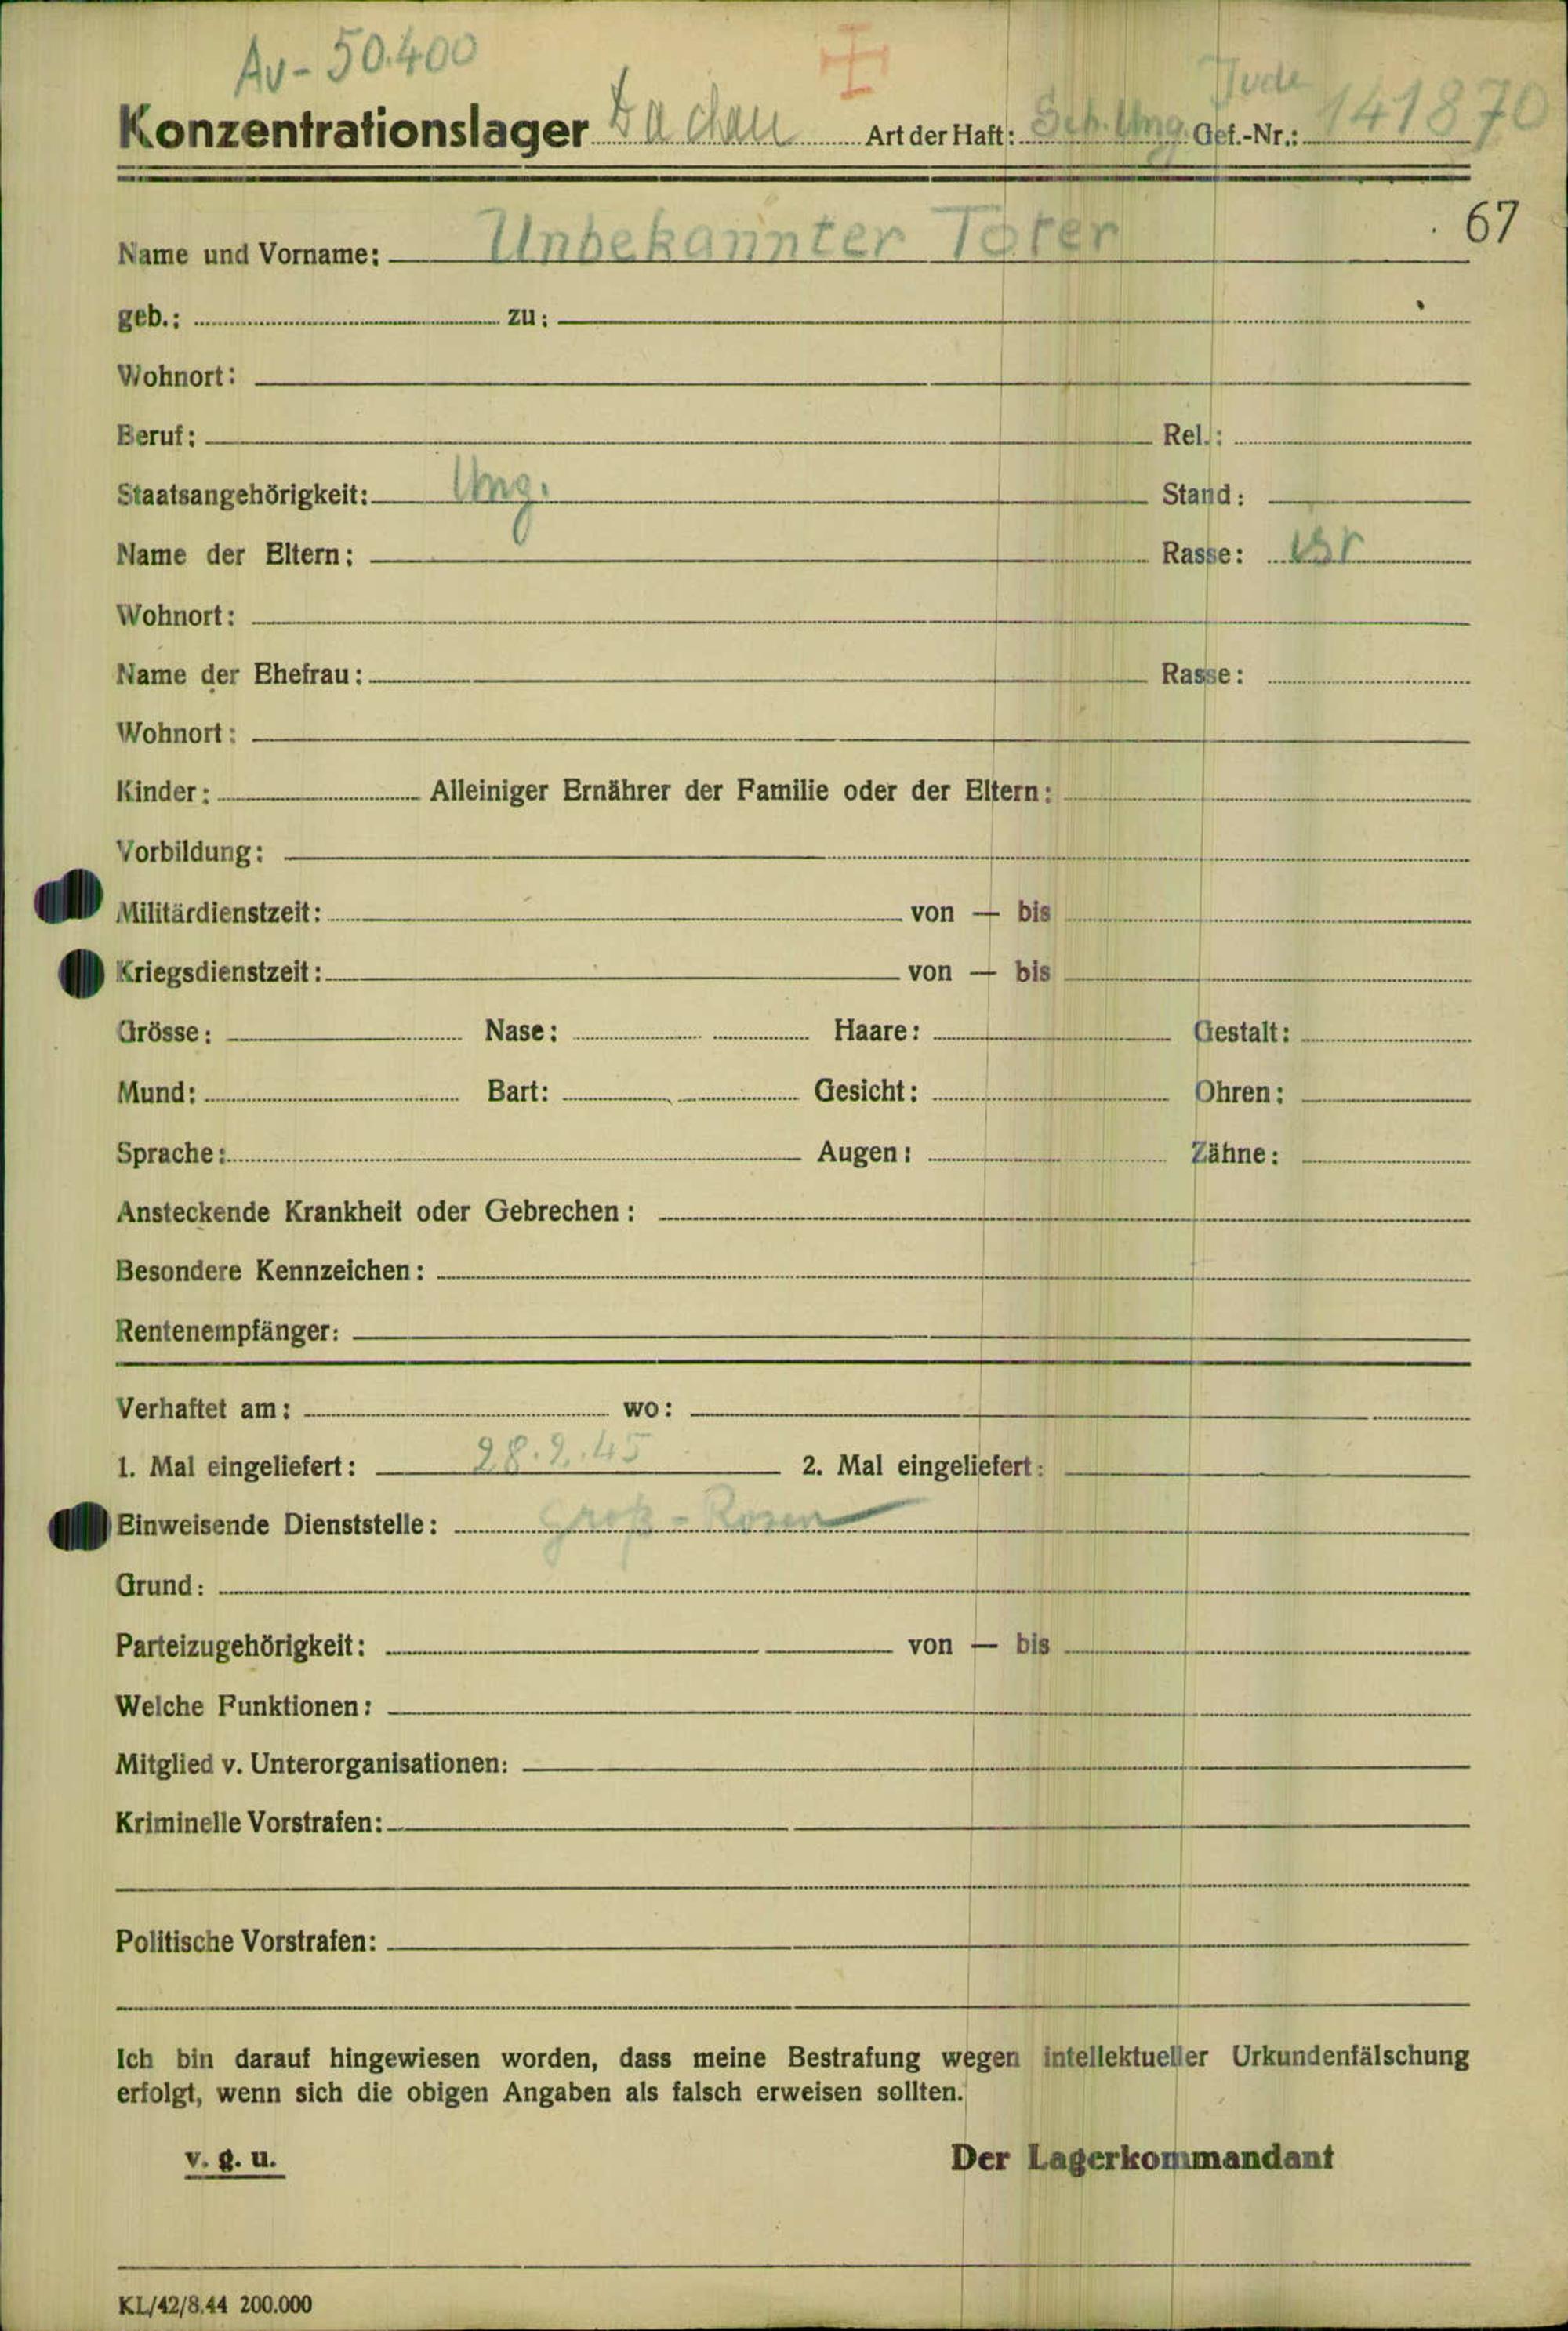 Av - 50.400
Jude
Konzentrationslager Dachau Art der Haft: Sch. Ung. Gef.-Nr.: 141870
67
Name und Vorname: Unbekannter Toter
geb.: zu:
Wohnort:
Beruf: Rel.:
Staatsangehörigkeit: Ung. Stand:
Name der Eltern: Rasse: Isr
Wohnort:
Name der Ehefrau: Rasse:
Wohnort:
Kinder: Alleiniger Ernährer der Familie oder der Eltern:
Vorbildung:
Militärdienstzeit: von — bis
Kriegsdienstzeit: von — bis
Grösse: Nase: Haare: Gestalt:
Mund: Bart: Gesicht: Ohren:
Sprache: Augen: Zähne:
Ansteckende Krankheit oder Gebrechen:
Besondere Kennzeichen:
Rentenempfänger:
Verhaftet am: wo:
1. Mal eingeliefert: 28.2.45 2. Mal eingeliefert:
Einweisende Dienststelle: Groß-Rosen
Grund:
Parteizugehörigkeit: von — bis
Welche Funktionen:
Mitglied v. Unterorganisationen:
Kriminelle Vorstrafen:
Politische Vorstrafen:
Ich bin darauf hingewiesen worden, dass meine Bestrafung wegen intellektueller Urkundenfälschung
erfolgt, wenn sich die obigen Angaben als falsch erweisen sollten.
v. g. u. Der Lagerkommandant
KL/42/8.44 200.000